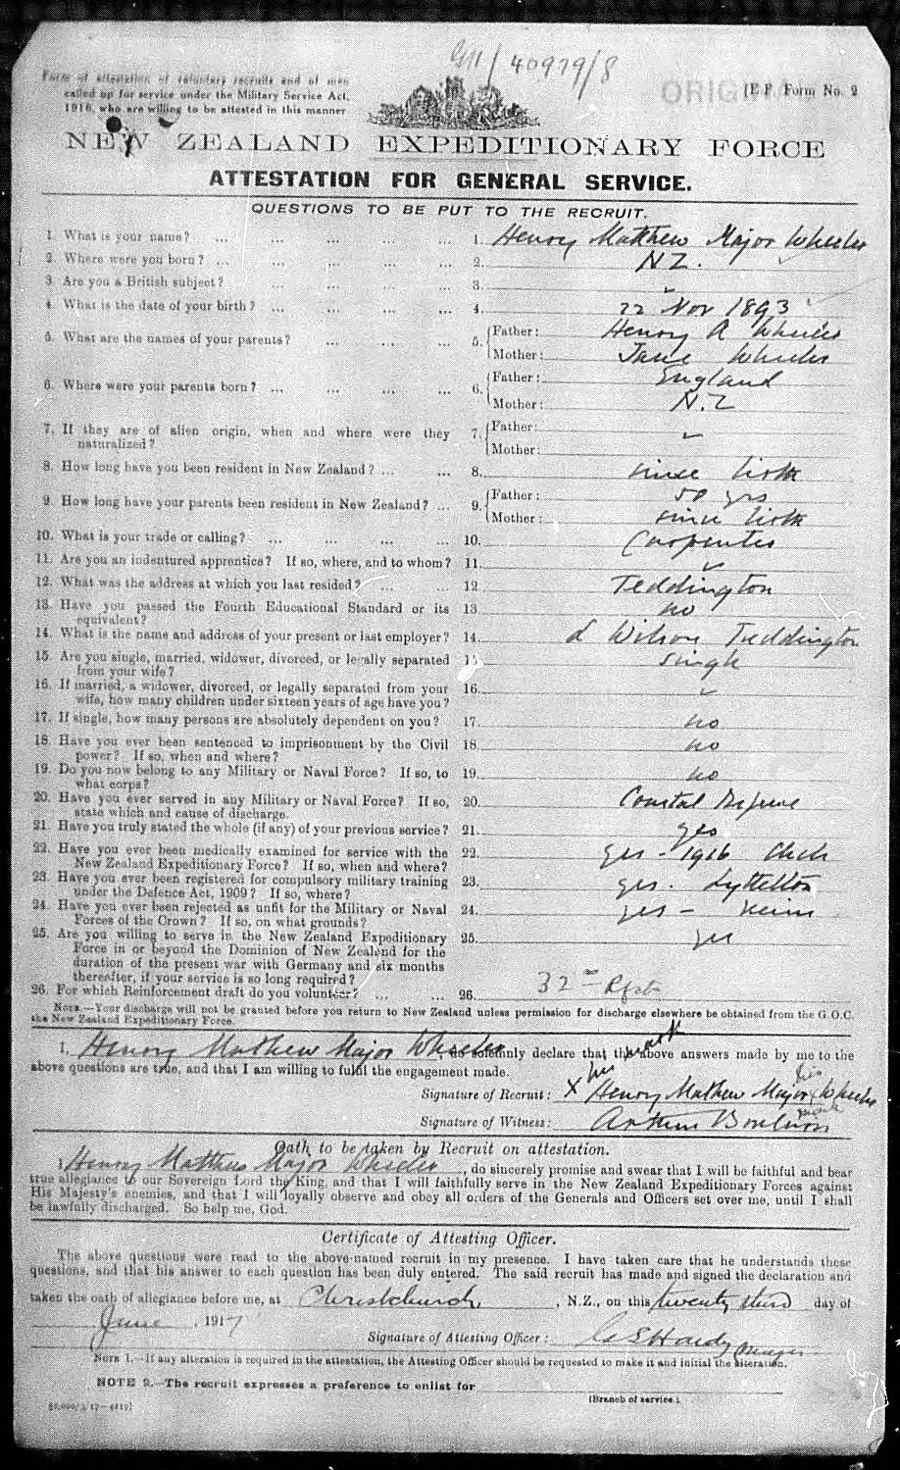 40979/8
Form of attestation of voluntary recruits and of men
called up for service under the Military Service Act,
1916, who are willing to be attested in this manner
ORIGINAL
[E.F. Form No. 2
NEW ZEALAND EXPEDITIONARY FORCE
ATTESTATION FOR GENERAL SERVICE.
QUESTIONS TO BE PUT TO THE RECRUIT.
1. What is your name? ... ... ... ... 1. Henry Matthew Major Wheeler
2. Where were you born? ... ... ... ... 2. NZ.
3. Are you a British subject? ... ... ... 3.
4. What is the date of your birth? ... ... ... ... 4. 22 Nov 1893
5. What are the names of your parents? ... ... 5. Father: Henry A Wheeler
Mother: Jane Wheeler
6. Where were your parents born? ... ... ... ... 6. Father: England
Mother: N.Z
7. If they are of alien origin, when and where were they 7. Father:
naturalized? Mother:
8. How long have you been resident in New Zealand? ... ... 8. since birth
9. How long have your parents been resident in New Zealand? ... 9. Father: 50 yrs
Mother: since birth
10. What is your trade or calling? ... ... ... ... 10. Carpenter
11. Are you an indentured apprentice? If so, where, and to whom? 11.
12. What was the address at which you last resided? ... ... 12 Teddington
13. Have you passed the Fourth Educational Standard or its 13 no
equivalent?
14. What is the name and address of your present or last employer? 14. d Wilson Teddington
15. Are you single, married, widower, divorced, or legally separated 15 single
from your wife?
16. If married, a widower, divorced, or legally separated from your 16.
wife, how many children under sixteen years of age have you?
17. If single, how many persons are absolutely dependent on you? 17. no
18. Have you ever been sentenced to imprisonment by the Civil 18. no
power? If so, when and where?
19. Do you now belong to any Military or Naval Force? If so, to 19. no
what corps?
20. Have you ever served in any Military or Naval Force? If so, 20. Coastal Defence
state which and cause of discharge.
21. Have you truly stated the whole (if any) of your previous service? 21. yes
22. Have you ever been medically examined for service with the 22. yes - 1916 Chch
New Zealand Expeditionary Force? If so, when and where?
23. Have you ever been registered for compulsory military training 23. yes. Lyttelton
under the Defence Act, 1909? If so, where?
24. Have you ever been rejected as unfit for the Military or Naval 24. yes -
Forces of the Crown? If so, on what grounds?
25. Are you willing to serve in the New Zealand Expeditionary 25. yes
Force in or beyond the Dominion of New Zealand for the
duration of the present war with Germany and six months
thereafter, if your service is so long required?
26. For which Reinforcement draft do you volunteer? ... ... 26. 32nd Rfcts
NOTE.—Your discharge will not be granted before you return to New Zealand unless permission for discharge elsewhere be obtained from the G.O.C.
the New Zealand Expeditionary Force.
I, Henry Mathew Major Wheeler, do solemnly declare that the above answers made by me to the
above questions are true, and that I am willing to fulfil the engagement made.
his mark
Signature of Recruit: X Henry Mathew Major Wheeler
his mark
Signature of Witness: Arthur
Oath to be taken by Recruit on attestation.
I Henry Matthew Major Wheeler, do sincerely promise and swear that I will be faithful and bear
true allegiance to our Sovereign Lord the King, and that I will faithfully serve in the New Zealand Expeditionary Forces against
His Majesty's enemies, and that I will loyally observe and obey all orders of the Generals and Officers set over me, until I shall
be lawfully discharged. So help me, God.
Certificate of Attesting Officer.
The above questions were read to the above-named recruit in my presence. I have taken care that he understands these
questions, and that his answer to each question has been duly entered. The said recruit has made and signed the declaration and
taken the oath of allegiance before me, at Christchurch, N.Z., on this twenty third day of
June, 1917
Signature of Attesting Officer: C S Hardy Major
NOTE 1.—If any alteration is required in the attestation, the Attesting Officer should be requested to make it and initial the alteration.
NOTE 2.—The recruit expresses a preference to enlist for
(Branch of service.)